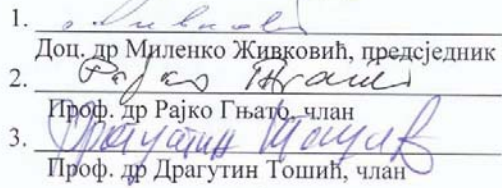 1.
Доц. др Миленко Живковић, предсједник
2. Рајко Гњато
Проф. др Рајко Гњато, члан
3. Драгутин Тошић
Проф. др Драгутин Тошић, члан